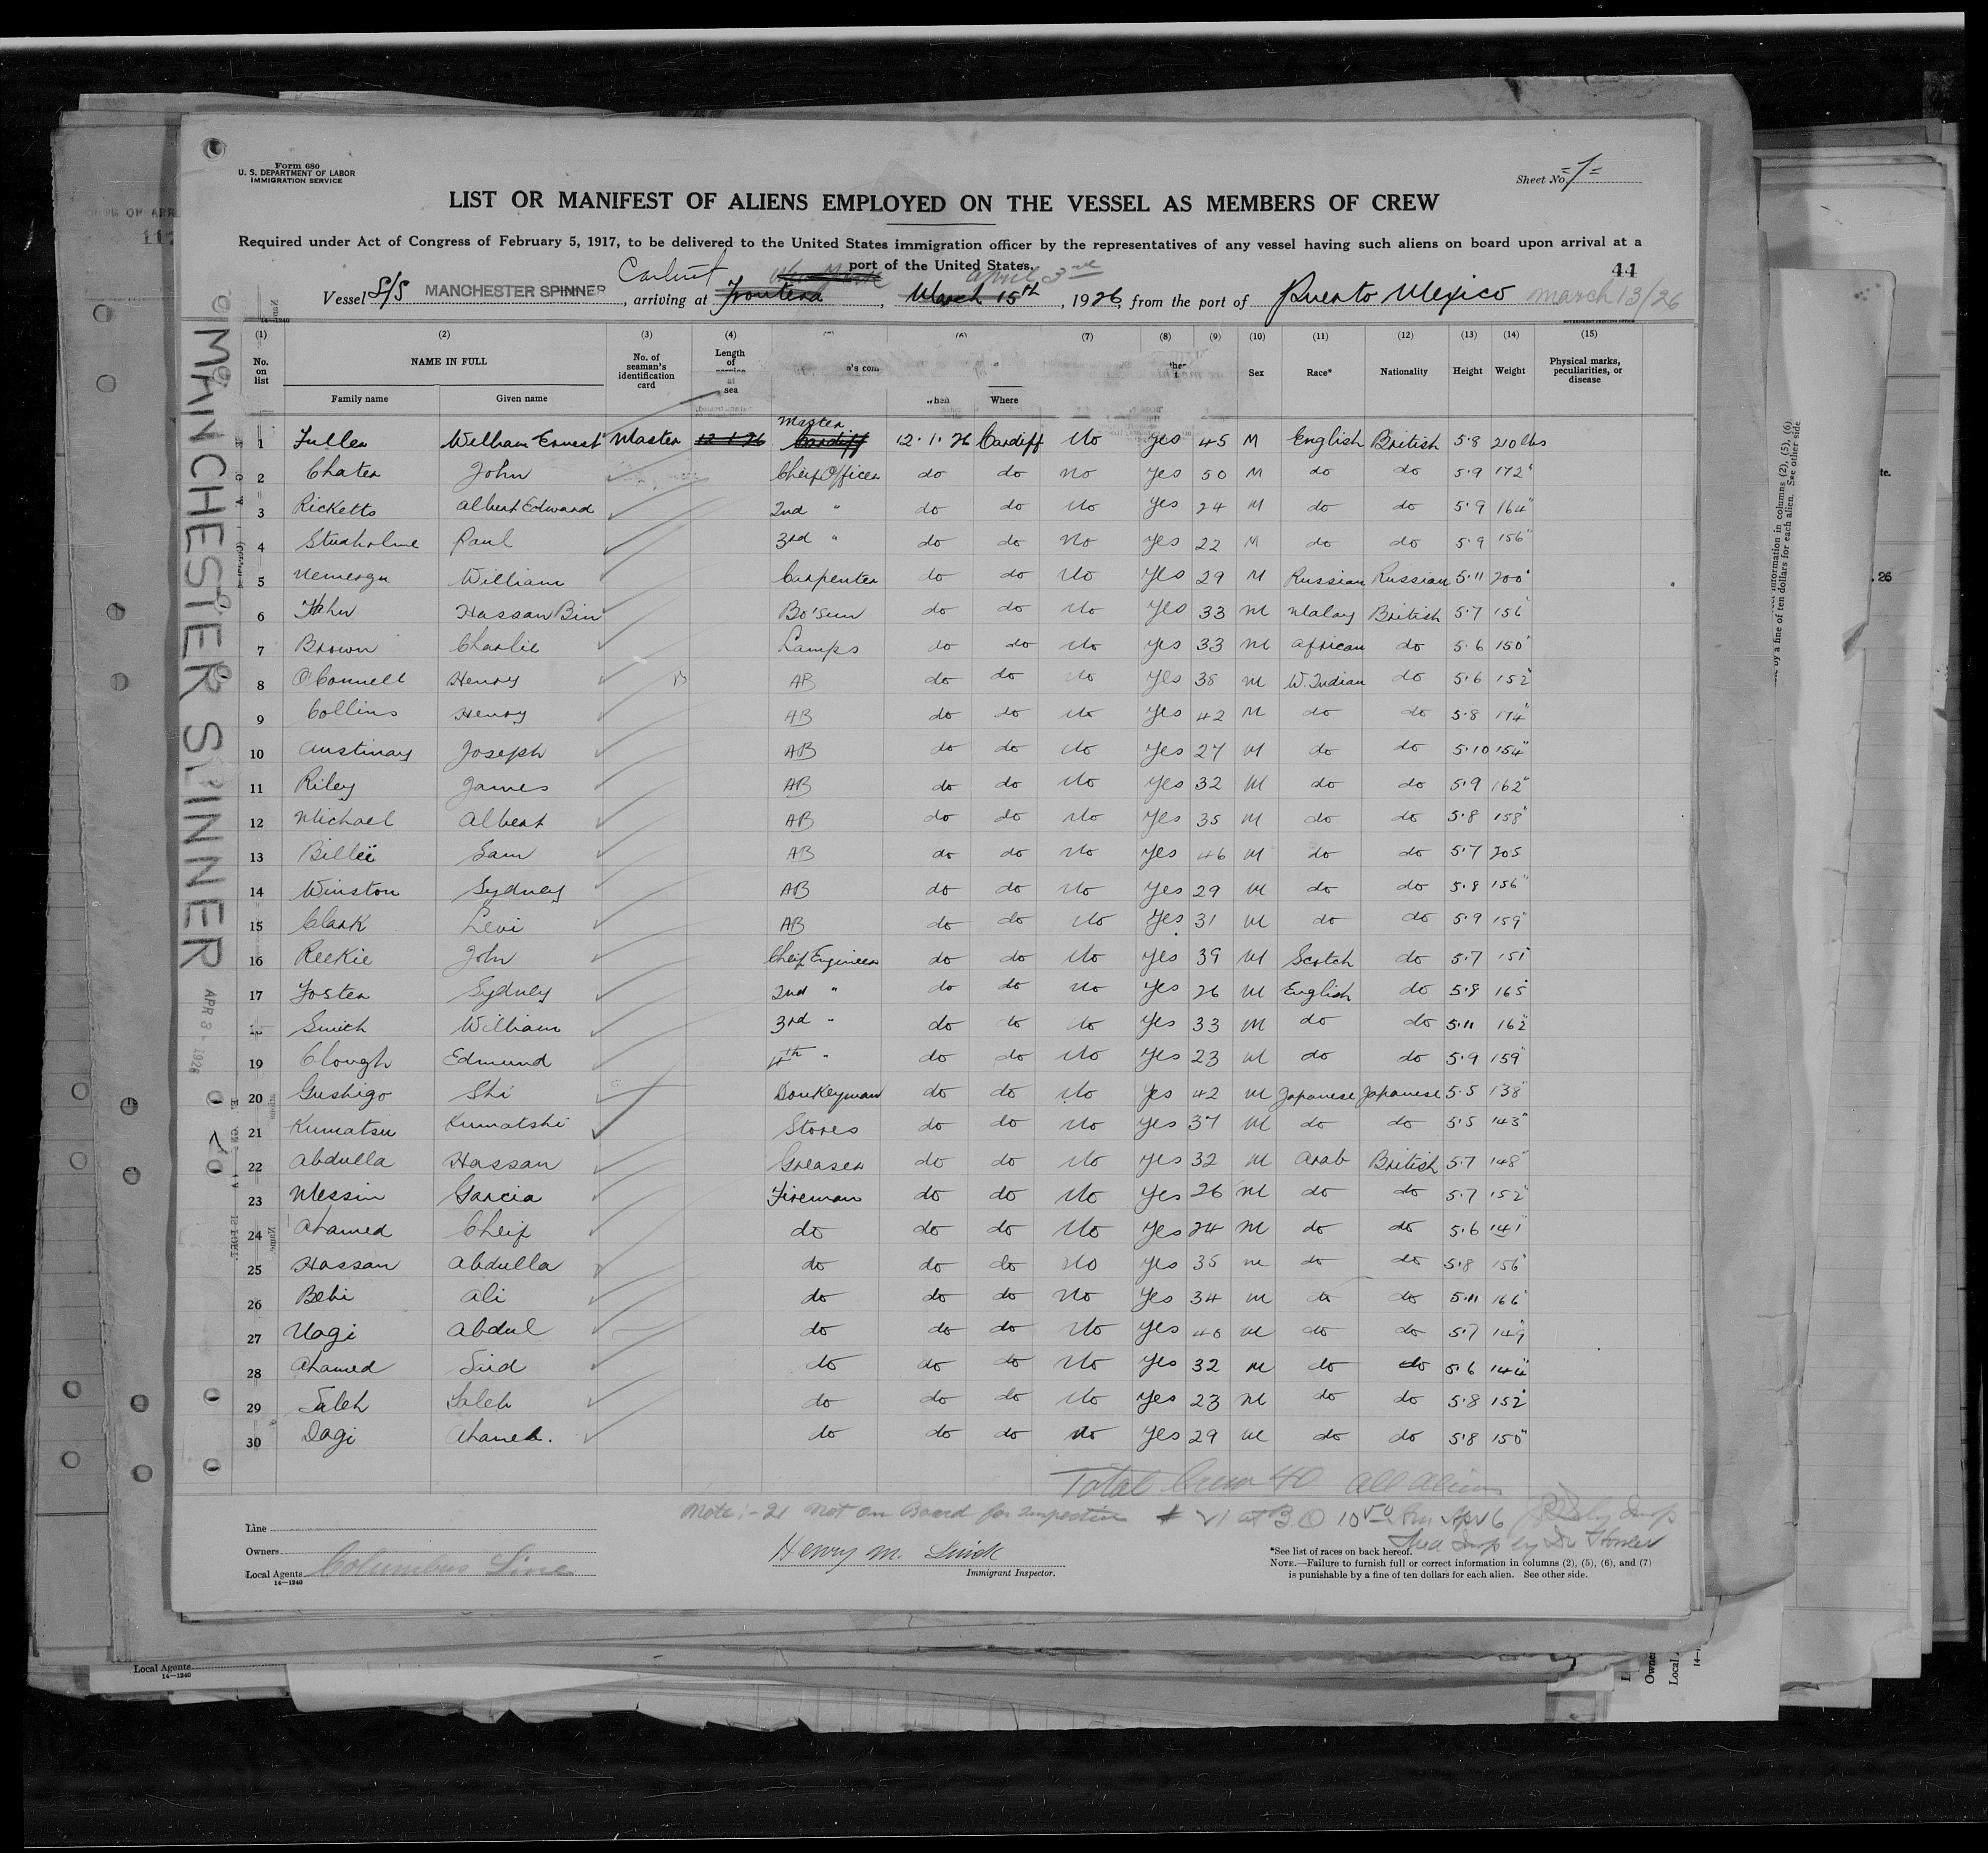 Form 680
U. S. DEPARTMENT OF LABOR
IMMIGRATION SERVICE
Sheet No. =1=
LIST OR MANIFEST OF ALIENS EMPLOYED ON THE VESSEL AS MEMBERS OF CREW
Required under Act of Congress of February 5, 1917, to be delivered to the United States immigration officer by the representatives of any vessel having such aliens on board upon arrival at a
port of the United States.
April 3rd
44
Vessel S/S MANCHESTER SPINNER, arriving at Frontera, March 15th, 1926, from the port of Puerto Mexico March 13/26
14—1240
GOVERNMENT PRINTING OFFICE
(1) (2) (3) (4) (6) (7) (8) (9) (10) (11) (12) (13) (14) (15)
No. on list NAME IN FULL No. of seaman's identification card Length of service at sea Sex Race* Nationality Height Weight Physical marks, peculiarities, or disease
Family name Given name When Where
1 Fuller William Ernest Master 12.1.26 Master Cardiff 12.1.26 Cardiff No Yes 45 M English British 5.8 210 lbs
2 Chater John Cheif Officer do do no Yes 50 M do do 5.9 172"
3 Ricketts Albert Edward 2nd " do do No Yes 24 M do do 5.9 164"
4 Studholme Paul 3rd " do do No Yes 22 M do do 5.9 156"
5 William Carpenter do do No Yes 29 M Russian Russian 5.11 200"
6 Hassan Bin Bo'sun do do No Yes 33 M Malay British 5.7 156
7 Brown Charlie Lamps do do No Yes 33 M African do 5.6 150"
8 O'Connell Henry AB do do No Yes 38 M W. Indian do 5.6 152"
9 Collins Henry AB do do No Yes 42 M do do 5.8 174"
10 Austinay Joseph AB do do No Yes 27 M do do 5.10 154"
11 Riley James AB do do No Yes 32 M do do 5.9 162"
12 Michael Albert AB do do No Yes 35 M do do 5.8 158"
13 Billie Sam AB do do No Yes 46 M do do 5.7 205
14 Winston Sydney AB do do No Yes 29 M do do 5.8 156"
15 Clark Levi AB do do No Yes 31 M do do 5.9 159"
16 Reekie John Cheif Engineer do do No Yes 39 M Scotch do 5.7 151"
17 Foster Sydney 2nd " do do No Yes 26 M English do 5.8 165"
Smith William 3rd " do do No Yes 33 M do do 5.11 162"
19 Clough Edmund 4th " do do No Yes 23 M do do 5.9 159"
20 Gushigo Shi Donkeyman do do No Yes 42 M Japanese Japanese 5.5 138"
21 Kumatsu Kumatshi Stores do do No Yes 37 M do do 5.5 143"
22 Abdulla Hassan Greaser do do No Yes 32 M Arab British 5.7 148"
23 Messin Garcia Fireman do do No Yes 26 M do do 5.7 152"
24 Ahamed Cheif do do do No Yes 24 M do do 5.6 141"
25 Hassan Abdulla do do do No Yes 35 M do do 5.8 156"
26 Bebi Ali do do do No Yes 34 M do do 5.11 166"
27 Nagi Abdul do do do No Yes 40 M do do 5.7 149"
28 Ahamed Siid do do do No Yes 32 M do do 5.6 144"
29 Saleh Saleh do do do No Yes 23 M do do 5.8 152"
30 Dagi Ahamed. do do do No Yes 29 M do do 5.8 150"
Total Crew 40 All Aliens
Note:- 21 Not on Board for Inspection
Line
Owners
Local Agents Columbus Line
14—1240
Henry M.
Immigrant Inspector.
*See list of races on back hereof.
NOTE.—Failure to furnish full or correct information in columns (2), (5), (6), and (7)
is punishable by a fine of ten dollars for each alien. See other side.
MANCHESTER SPINNER
APR 3 - 1926
Local Agents
14—1240